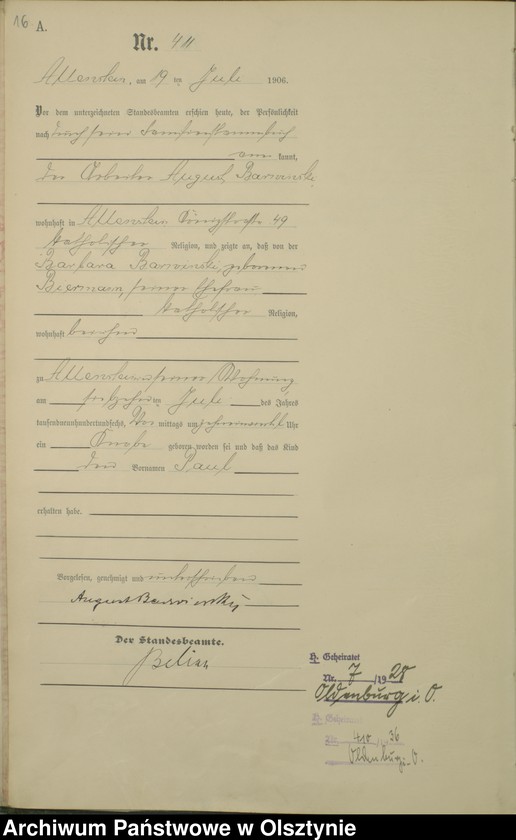 16
A.
Nr. 411
Allenstein, am 19 ten Juli 1906.
Vor dem unterzeichneten Standesbeamten erschien heute, der Persönlichkeit
nach durch seinen
kannt,
der Arbeiter August Barwinski
wohnhaft in Allenstein Königstraße 49
katholischer Religion, und zeigte an, daß von der
Barbara Barwinski, geborenen
Biermann, seiner Ehefrau
katholischer Religion,
wohnhaft bei ihm
zu Allenstein in seiner Wohnung
am ten Juli des Jahres
tausendneunhundertundsechs, Vor mittags um Uhr
ein Knabe geboren worden sei und daß das Kind
den Vornamen Paul
erhalten habe.
Vorgelesen, genehmigt und unterschrieben
August Barwinski
Der Standesbeamte.
H. Geheiratet
Nr. 7 /19 28
Oldenburg i. O.
Nr. 410 36
Oldenburg i. O.
Archiwum Państwowe w Olsztynie